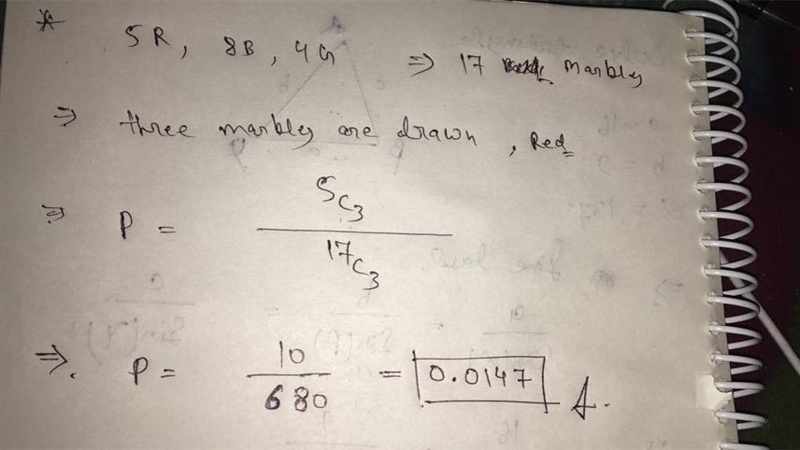 * 5R, 8B, 4G ⇒ 17 marbly
⇒ three marbly are drawn, Red
⇒ P = 5C3 / 17C3
⇒. P = 10 / 680 = 0.0147 A.